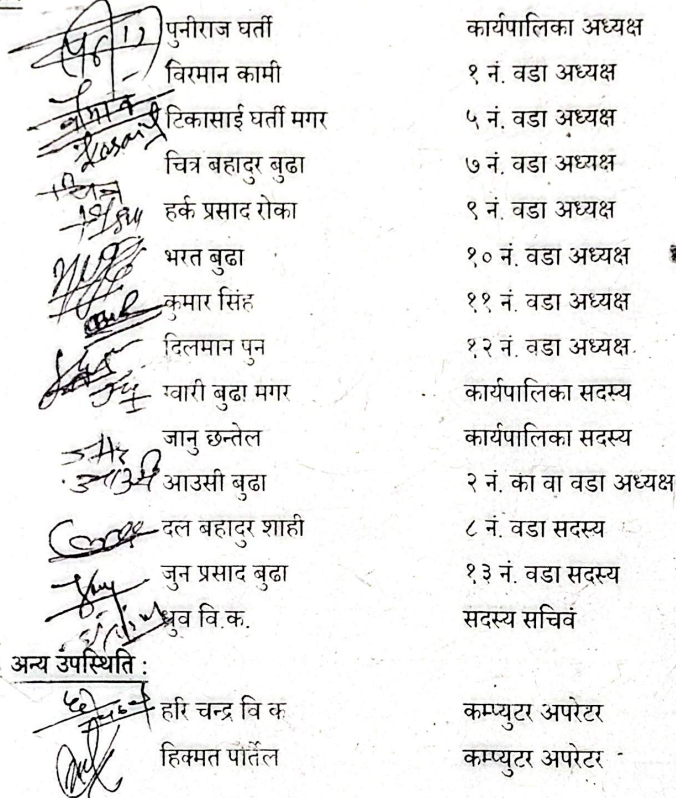 पुनीराज घर्ती कार्यपालिका अध्यक्ष
विरमान कामी १ नं. वडा अध्यक्ष
टिकासाई घर्ती मगर ५ नं. वडा अध्यक्ष
चित्र बहादुर बुढा ७ नं. वडा अध्यक्ष
हर्क प्रसाद रोका ९ नं. वडा अध्यक्ष
भरत बुढा १० नं. वडा अध्यक्ष
कुमार सिंह ११ नं. वडा अध्यक्ष
दिलमान पुन १२ नं. वडा अध्यक्ष
ग्वारी बुढा मगर कार्यपालिका सदस्य
जानु छन्तेल कार्यपालिका सदस्य
आउसी बुढा २ नं. का वा वडा अध्यक्ष
दल बहादुर शाही ८ नं. वडा सदस्य
जुन प्रसाद बुढा १३ नं. वडा सदस्य
ध्रुव वि.क. सदस्य सचिव
अन्य उपस्थिति :
हरि चन्द्र वि क कम्प्युटर अपरेटर
हिक्मत पौर्तेल कम्प्युटर अपरेटर